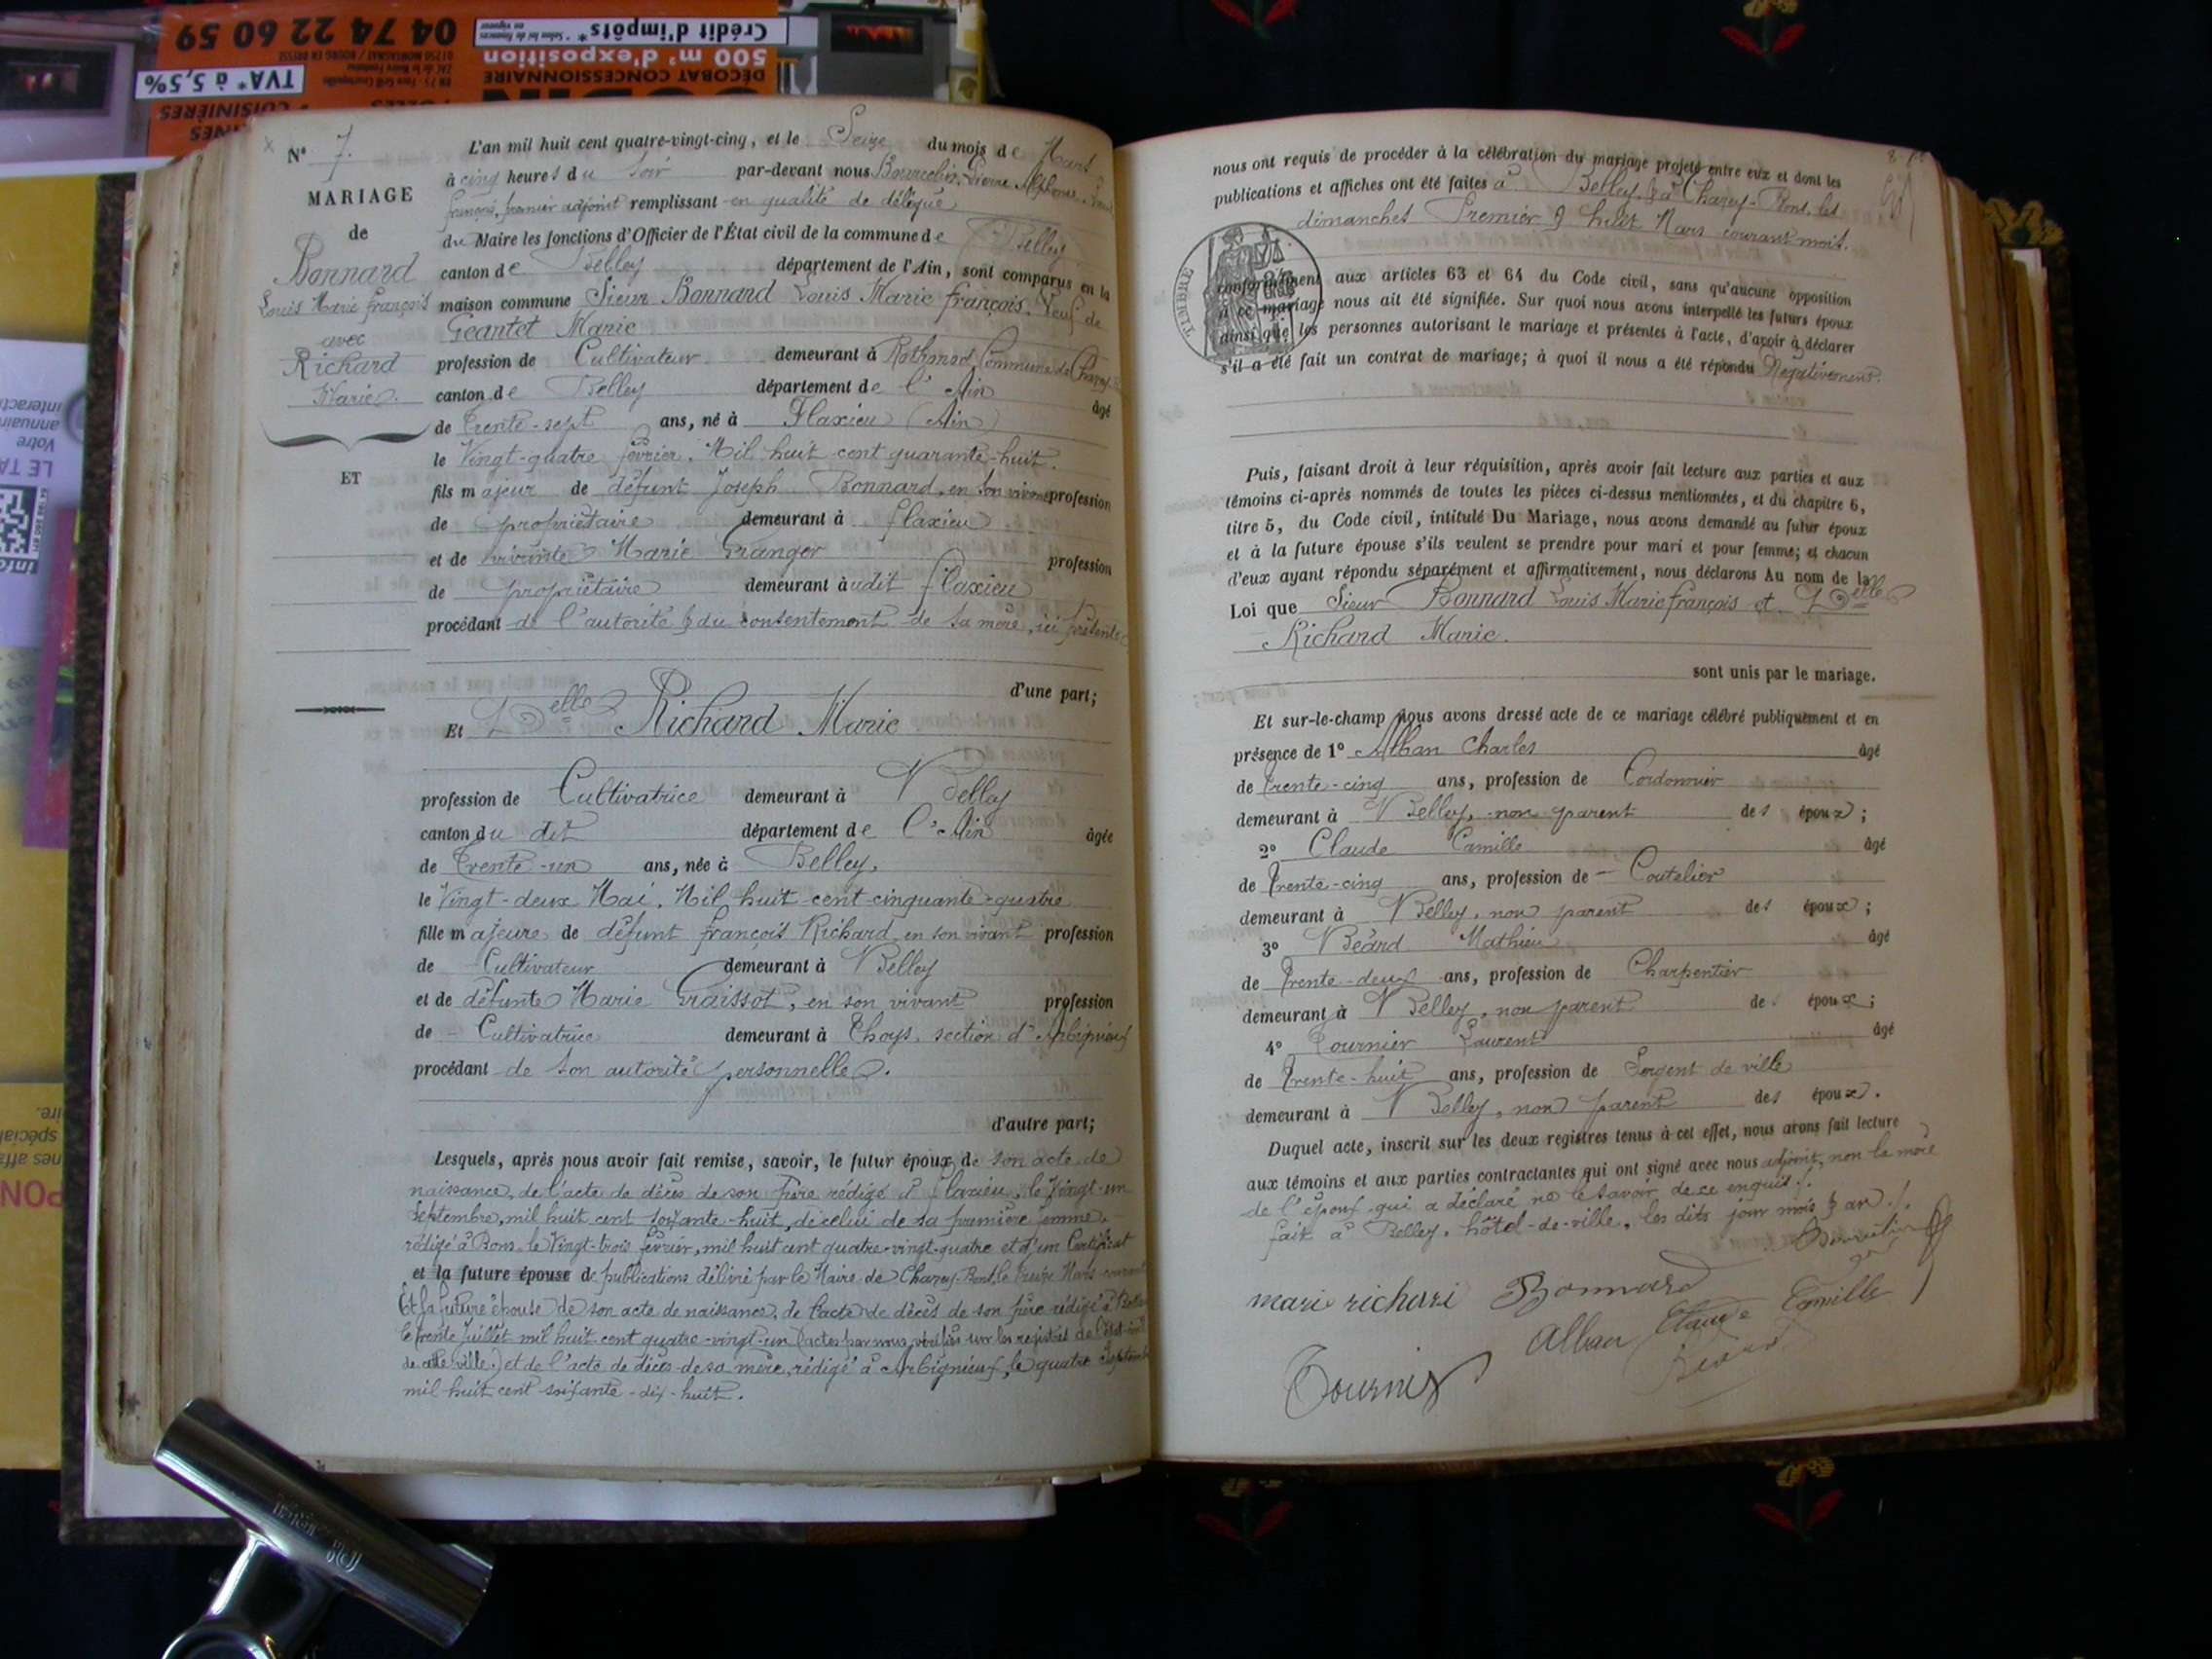 04 74 22 60 59
Crédit d'impôts*
500 m² d'exposition
DÉCOBAT CONCESSIONNAIRE
TVA* à 5,5%
CUISINIÈRES
N° 7.
MARIAGE
de
Bonnard
Louis Marie françois
avec
Richard
Marie.
L'an mil huit cent quatre-vingt-cinq, et le Seize du mois de Mars
à cinq heures du soir par-devant nous Pierre Alphonse
françois, premier adjoint remplissant en qualité de délégué
du Maire les fonctions d'Officier de l'État civil de la commune de Belley
canton de Belley département de l'Ain, sont comparus en la
maison commune Sieur Bonnard Louis Marie françois. Veuf de
Geantet Marie
profession de Cultivateur. demeurant à Rothonod Commune de
canton de Belley département de l'Ain âgé
de trente-sept ans, né à Flaxieu (Ain)
le Vingt-quatre février. Mil huit cent quarante-huit.
ET
fils majeur de défunt Joseph Bonnard, en son vivant profession
de propriétaire demeurant à flaxieu
et de vivante Marie Granger profession
de propriétaire demeurant audit flaxieu
procédant de l'autorité & du consentement de sa mère, ici présente
d'une part;
Et Delle Richard Marie
profession de Cultivatrice demeurant à Belley
canton du dit département de l'Ain âgée
de trente-un ans, née à Belley,
le Vingt-deux Mai. Mil huit cent cinquante-quatre
fille majeure de défunt françois Richard en son vivant profession
de Cultivateur demeurant à Belley
et de défunte Marie Graissot, en son vivant profession
de - Cultivatrice demeurant à Thoys, section d'Arbignieu
procédant de son autorité personnelle.
d'autre part;
Lesquels, après nous avoir fait remise, savoir, le futur époux de son acte de
naissance, de l'acte de décès de son père rédigé à flaxieu, le Vingt-un
Septembre, mil huit cent soixante-huit, de celui de sa première femme,
rédigé à Bons, le Vingt-trois février, mil huit cent quatre-vingt-quatre et d'un Certificat
et la future épouse de publications délivré par le Maire de Chazey-Bons, le Mars courant
Et la future épouse de son acte de naissance, de l'acte de décès de son père rédigé à
le trente Juillet mil huit cent quatre-vingt-un (actes par nous vérifiés sur les registres de l'état-civil
de cette ville.) et de l'acte de décès de sa mère, rédigé à Arbignieu, le quatre Septembre
mil huit cent soixante-dix-huit.
nous ont requis de procéder à la célébration du mariage projeté entre eux et dont les
publications et affiches ont été faites à Belley & à Chazey-Bons, les
dimanches Premier & huit Mars courant mois.
TIMBRE
conformément aux articles 63 et 64 du Code civil, sans qu'aucune opposition
à ce mariage nous ait été signifiée. Sur quoi nous avons interpellé les futurs époux
ainsi que les personnes autorisant le mariage et présentes à l'acte, d'avoir à déclarer
s'il a été fait un contrat de mariage; à quoi il nous a été répondu Négativement.
Puis, faisant droit à leur réquisition, après avoir fait lecture aux parties et aux
témoins ci-après nommés de toutes les pièces ci-dessus mentionnées, et du chapitre 6,
titre 5, du Code civil, intitulé Du Mariage, nous avons demandé au futur époux
et à la future épouse s'ils veulent se prendre pour mari et pour femme; et chacun
d'eux ayant répondu séparément et affirmativement, nous déclarons Au nom de la
Loi que Sieur Bonnard Louis Marie françois et Delle
Richard Marie.
sont unis par le mariage.
Et sur-le-champ nous avons dressé acte de ce mariage célébré publiquement et en
présence de 1° Alban Charles âgé
de trente-cinq ans, profession de Cordonnier
demeurant à Belley, non parent des époux;
2° Claude Camille âgé
de trente-cinq ans, profession de - Coutelier
demeurant à Belley, non parent des époux;
3° Béard Mathieu âgé
de trente-deux ans, profession de Charpentier
demeurant à Belley, non parent des époux;
4° Tournier Laurent âgé
de trente-huit ans, profession de Sergent de ville
demeurant à Belley, non parent des époux.
Duquel acte, inscrit sur les deux registres tenus à cet effet, nous avons fait lecture
aux témoins et aux parties contractantes qui ont signé avec nous adjoint, non la mère
de l'époux qui a déclaré ne le savoir de ce enquis./.
fait à Belley, hôtel-de-ville, les dits jour mois & an./.
marie richard Bonnard
Alban Claude Camille
Béard
Tournier